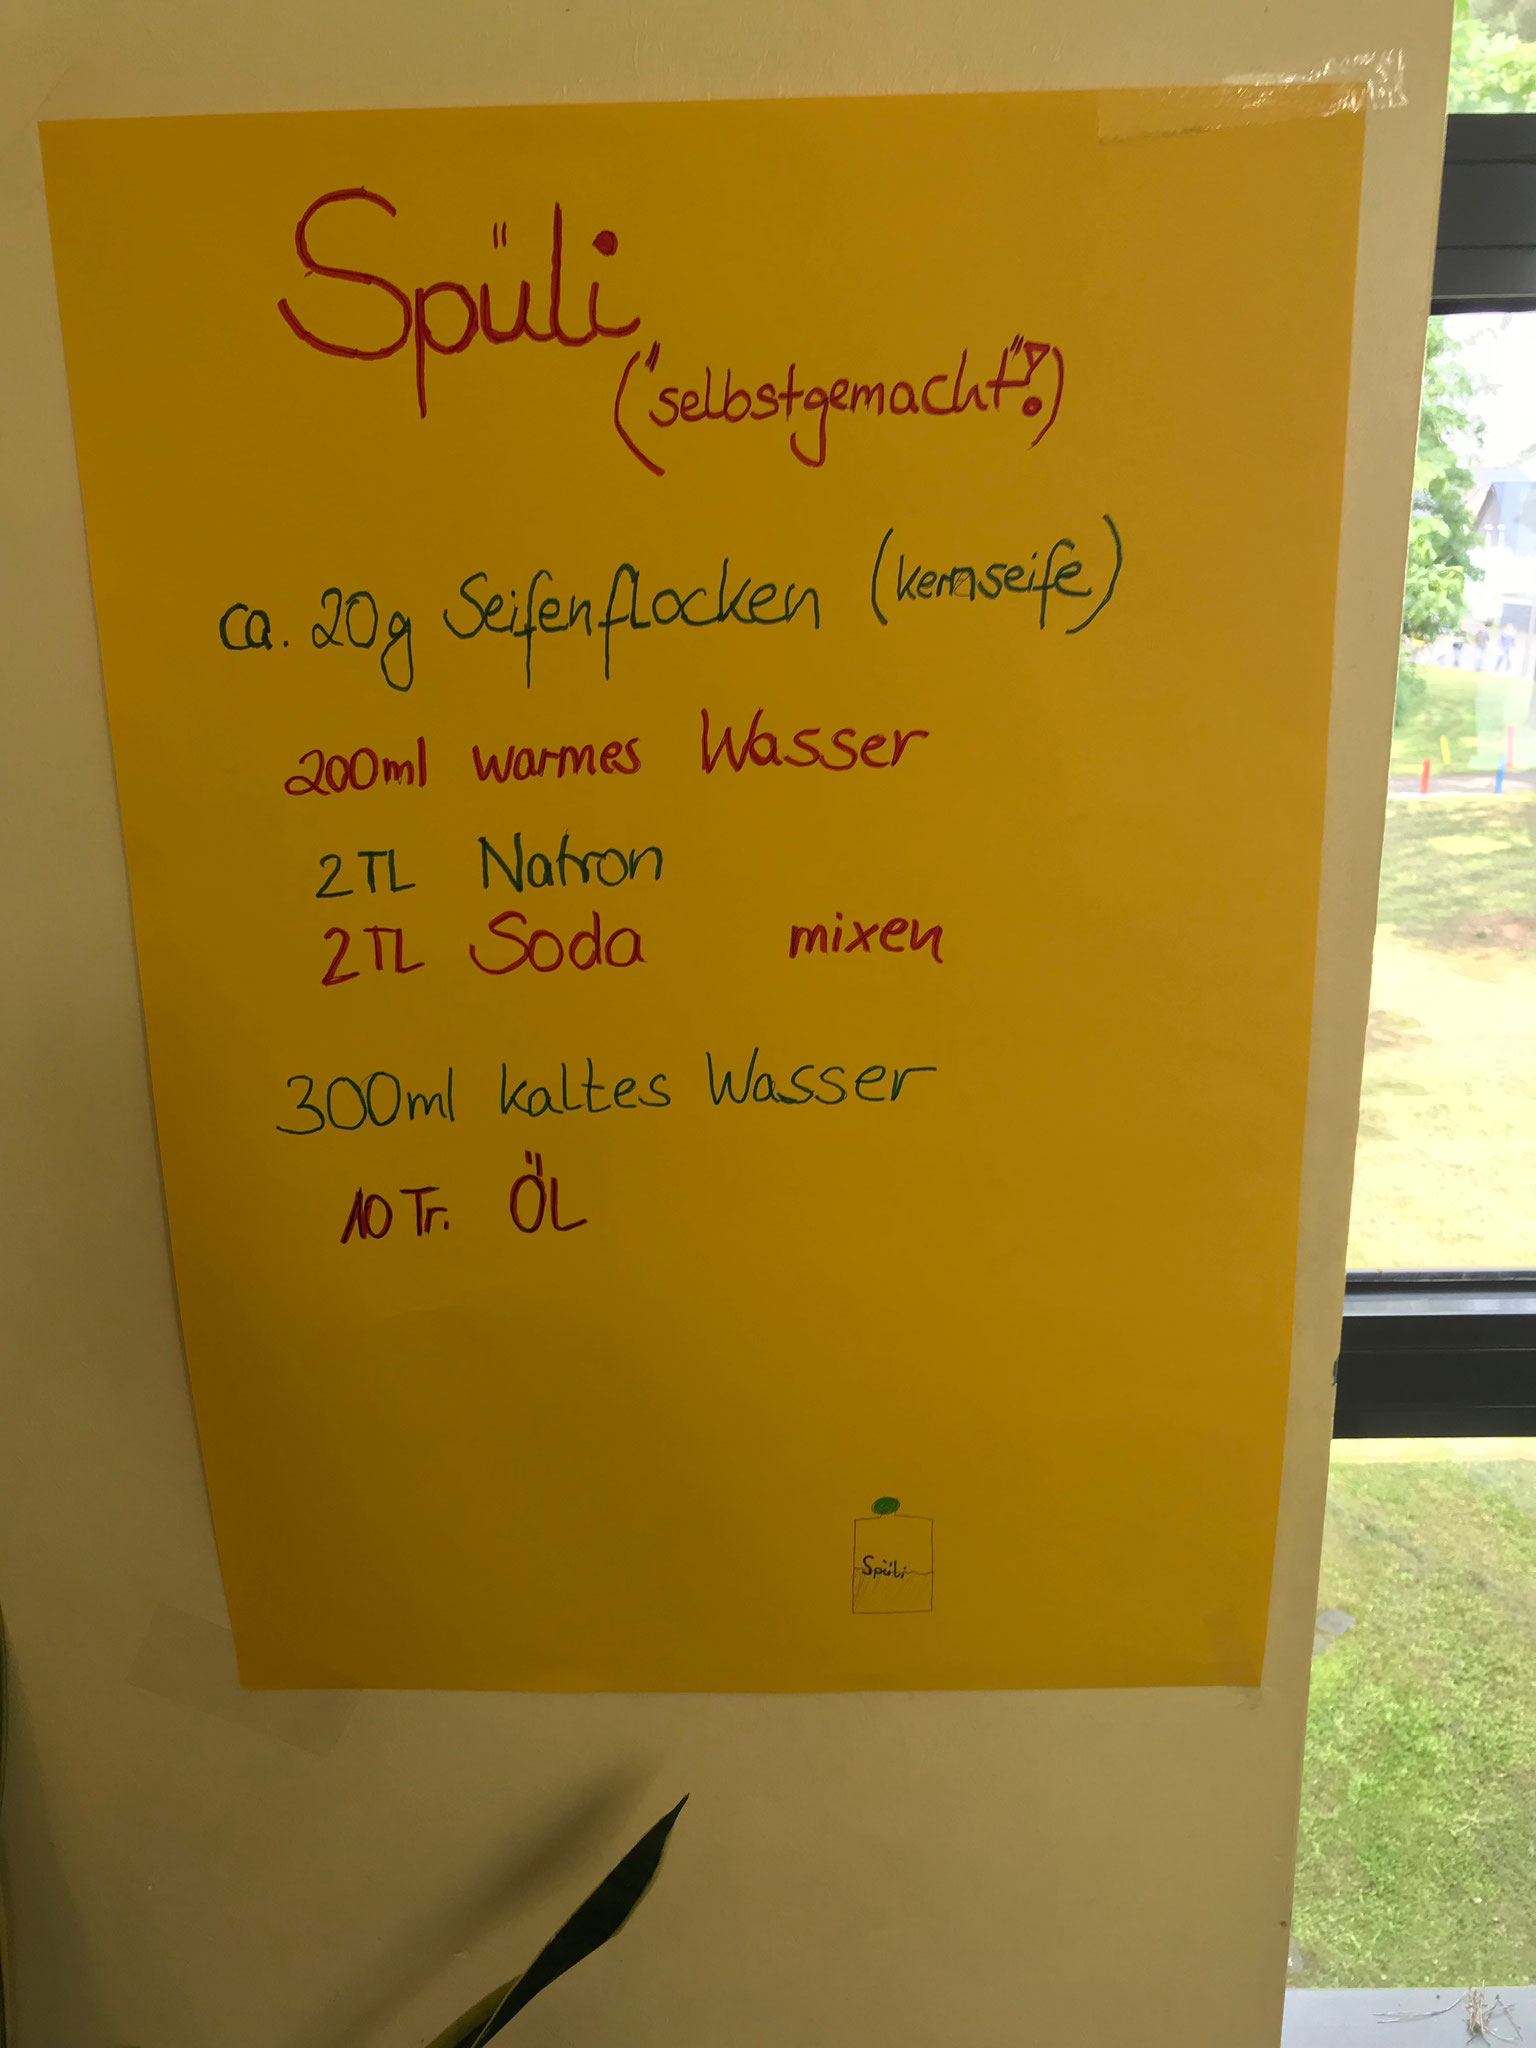 Spüli
("selbstgemacht"!)
ca. 20g Seifenflocken (kernseife)
200ml warmes Wasser
2TL Natron
2TL Soda mixen
300ml kaltes Wasser
10 Tr. ÖL
Spüli